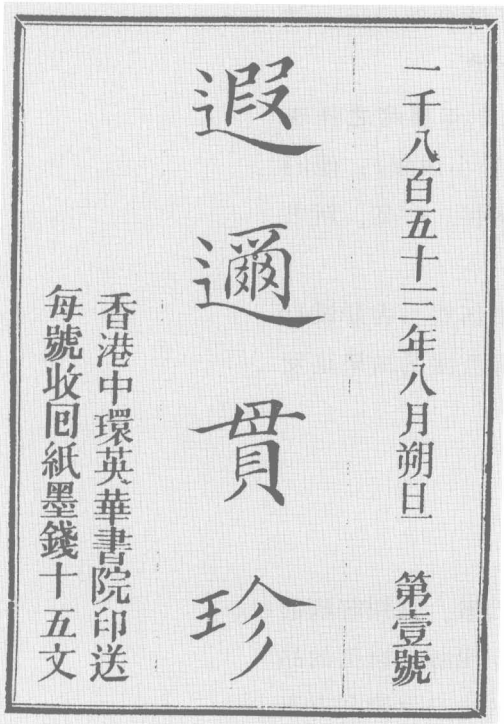 一千八百五十三年八月朔旦　第壹號
遐邇貫珍
香港中環英華書院印送
每號收囘紙墨錢十五文